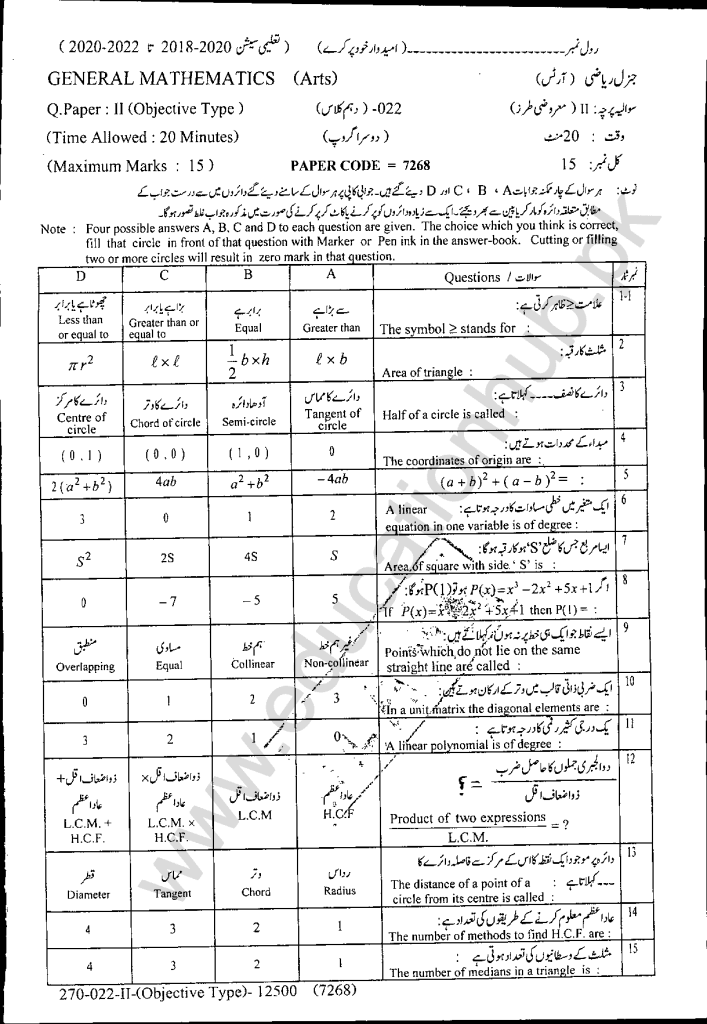 رول نمبر ـــــــــــــــــــ ( امیدوار خود پُر کرے ) ( تعلیمی سیشن 2018-2020 تا 2020-2022 )
GENERAL MATHEMATICS (Arts) جنرل ریاضی ( آرٹس )
Q.Paper : II (Objective Type ) 022- (دہم کلاس) سوالیہ پرچہ : II ( معروضی طرز )
(Time Allowed : 20 Minutes) ( دوسرا گروپ ) وقت : 20 منٹ
(Maximum Marks : 15 ) PAPER CODE = 7268 کل نمبر : 15
نوٹ : ہر سوال کے چار ممکنہ جوابات A ، B ، C اور D دیئے گئے ہیں۔ جوابی کاپی پر ہر سوال کے سامنے دیئے گئے دائروں میں سے درست جواب کے
مطابق متعلقہ دائرہ کو مارکر یا پین سے بھر دیجئے۔ ایک سے زیادہ دائروں کو پُر کرنے یا کاٹ کر پُر کرنے کی صورت میں مذکورہ جواب غلط تصور ہو گا۔
Note : Four possible answers A, B, C and D to each question are given. The choice which you think is correct,
fill that circle in front of that question with Marker or Pen ink in the answer-book. Cutting or filling
two or more circles will result in zero mark in that question.
D C B A Questions / سوالات نمبر شمار
چھوٹا ہے یا برابر بڑا ہے یا برابر برابر ہے سے بڑا ہے علامت ≥ ظاہر کرتی ہے : 1-1
Less than Greater than or Equal Greater than The symbol ≥ stands for :
or equal to equal to
مثلث کا رقبہ : 2
πr² ℓ × ℓ 1/2 b × h ℓ × b Area of triangle :
دائرے کا مرکز دائرے کا وتر آدھا دائرہ دائرے کا مماس دائرے کا نصف ۔۔۔۔ کہلاتا ہے : 3
Centre of Chord of circle Semi-circle Tangent of Half of a circle is called :
circle circle
مبداء کے محددات ہوتے ہیں : 4
( 0 , 1 ) ( 0 , 0 ) ( 1 , 0 ) 0 The coordinates of origin are :
2(a²+b²) 4ab a²+b² −4ab (a + b)² + ( a − b )² = : 5
ایک متغیر میں خطی مساوات کا درجہ ہوتا ہے : A linear 6
3 0 1 2 equation in one variable is of degree :
ایسا مربع جس کا ضلع 'S' ہو کا رقبہ ہو گا : 7
S² 2S 4S S Area of square with side ' S' is :
اگر P(x)=x³ −2x² +5x+1 ہو تو P(1) ہو گا : 8
0 −7 −5 5 If P(x)=x³−2x² +5x+1 then P(1) = :
منطبق مساوی ہم خط غیر ہم خط ایسے نقاط جو ایک ہی خط پر نہ ہوں کہلاتے ہیں : 9
Overlapping Equal Collinear Non-collinear Points which do not lie on the same
straight line are called :
ایک ضربی ذاتی قالب میں وتر کے ارکان ہوتے ہیں : 10
0 1 2 3 In a unit matrix the diagonal elements are :
یک درجی کثیر رقمی کا درجہ ہوتا ہے : 11
3 2 1 0 A linear polynomial is of degree :
ذواضعاف اقل + ذواضعاف اقل × ذواضعاف اقل عاد اعظم دو الجبری جملوں کا حاصل ضرب 12
عاد اعظم عاد اعظم L.C.M H.C.F ذواضعاف اقل = ؟
L.C.M. + L.C.M. × Product of two expressions = ?
H.C.F. H.C.F. L.C.M.
قطر مماس وتر رداس دائرہ پر موجود ایک نقطہ کا اس کے مرکز سے فاصلہ دائرے کا 13
Diameter Tangent Chord Radius The distance of a point of a : ۔۔۔ کہلاتا ہے
circle from its centre is called :
عاد اعظم معلوم کرنے کے طریقوں کی تعداد ہے : 14
4 3 2 1 The number of methods to find H.C.F. are :
مثلث کے وسطانیوں کی تعداد ہوتی ہے : 15
4 3 2 1 The number of medians in a triangle is :
270-022-II-(Objective Type)- 12500 (7268)
www.educationhub.pk